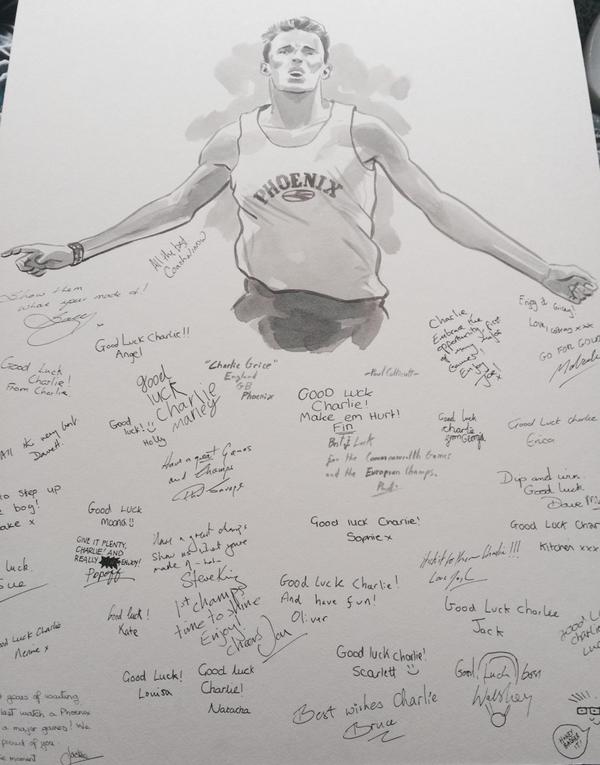 PHOENIX
All the best
Show them
what your made of!
Good Luck Charlie!!
Angel
Good Luck
Charlie!
From Charlie
good
luck
charlie
marley
"Charlie Grice"
England
GB
Phoenix
-Paul Collicutt-
Charlie
Embrace the
opportunity, first
of many major
Games!
Enjoy it
Enjoy it Gricey!
Love,
GO FOR GOLD
Good
luck!
Holly
GOOD LUCK
Charlie!
Make em Hurt!
Fin
Best of Luck
for the Commonwealth Games
and the European Champs.
Phil.
Good luck
charlie
from Georgia
Good Luck Charlie
Erica
All the very best
Have a great Games
and Champs
to step up
boy!
ake x
Good Luck
Moona
Dip and win.
Good luck
Dave M
Good Luck Char
Kitchen xxx
Good luck Charlie!
Sophie x
GIVE IT PLENTY,
CHARLIE! AND
REALLY ENJOY!
Have a great champs
show us what you're
made of
Steve King
luck.
Sue
Good luck!
Kate
1st champs
time to shine
Enjoy!
Cheers Jon
Good Luck Charlie!
And have fun!
Oliver
Good Luck Charlie
Jack
ood Luck Charlie
Good Luck!
Louisa
Good luck
Charlie!
Natacha
Good luck Charlie!
Scarlett
Good Luck
Walshey
Best wishes Charlie
Bruce
years of waiting
last watch a Phoenix
a major games! We
proud of you.
moment
Jackie
HONEY
BADGER
IT!